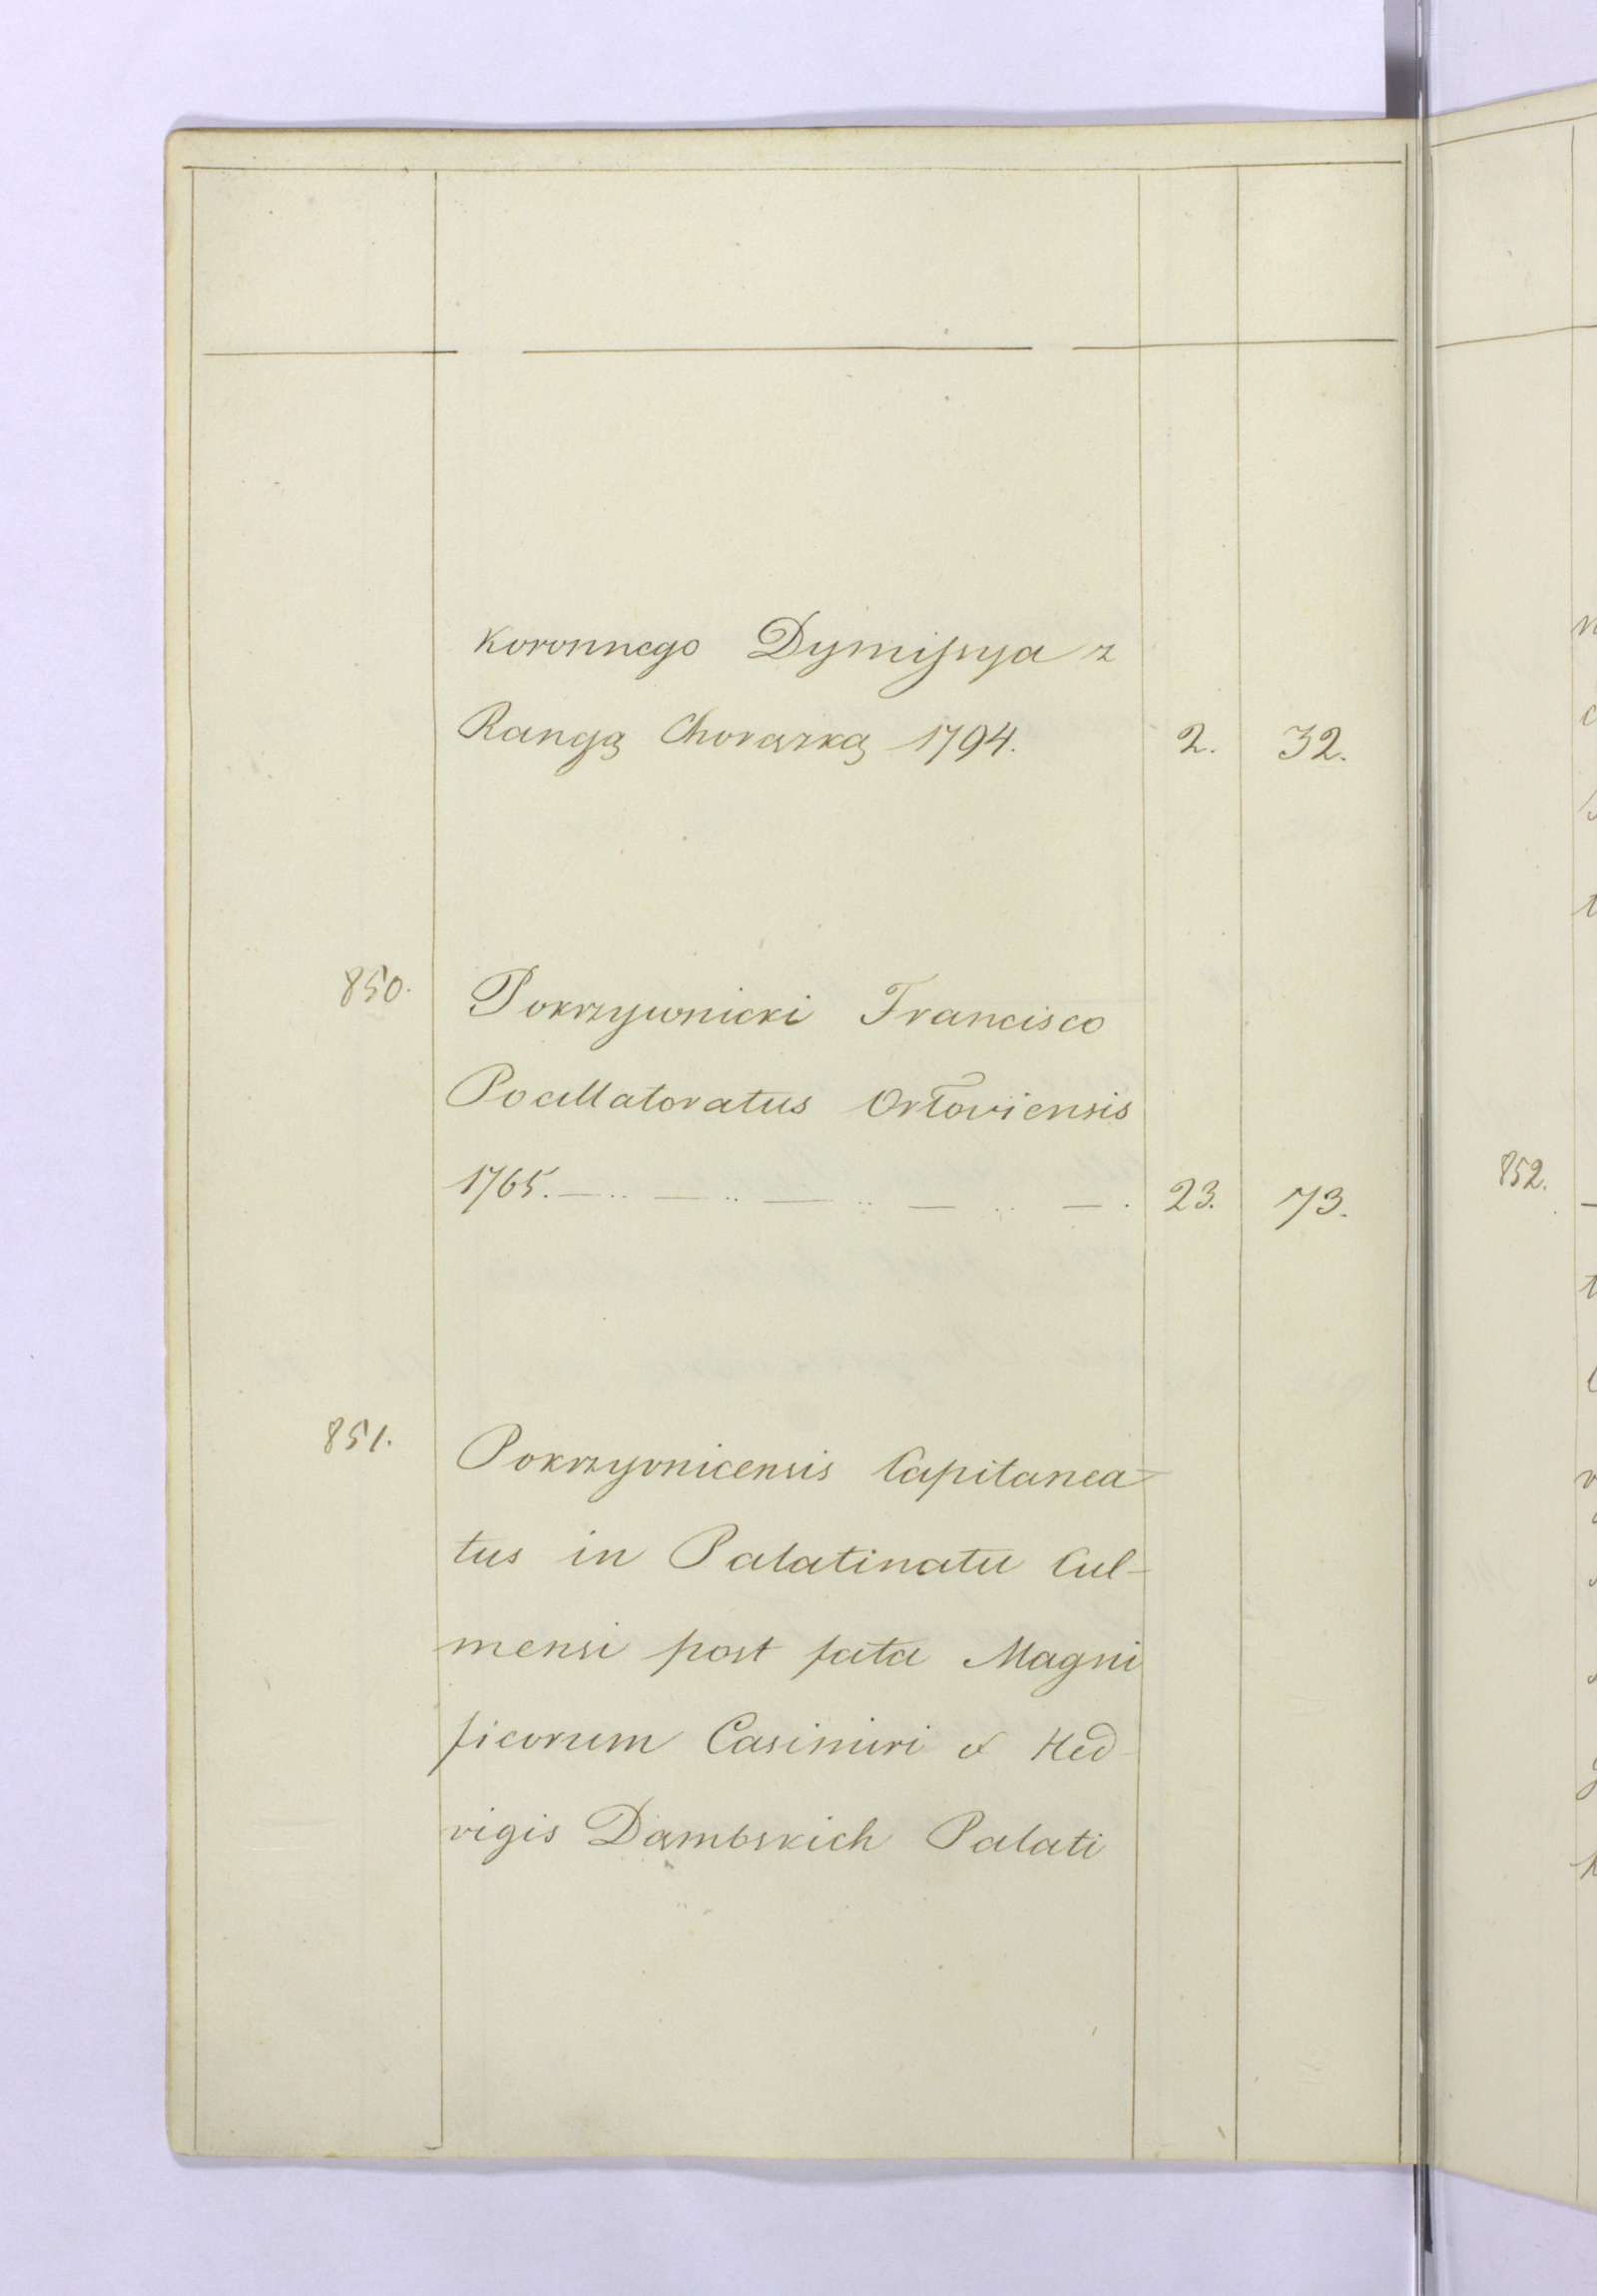 koronnego Dymissya z
Rangą Chorązką 1794. 2. 32.
850. Pokrzywnicki Francisco
Pocillatoratus Orłoviensis
1765. — .. — .. — .. — .. — . 23. 73.
851. Pokrzyvnicensis Capitanea-
tus in Palatinatu Cul-
mensi post fata Magni
ficorum Casimiri et Hed-
vigis Dąmbskich Palati
852.